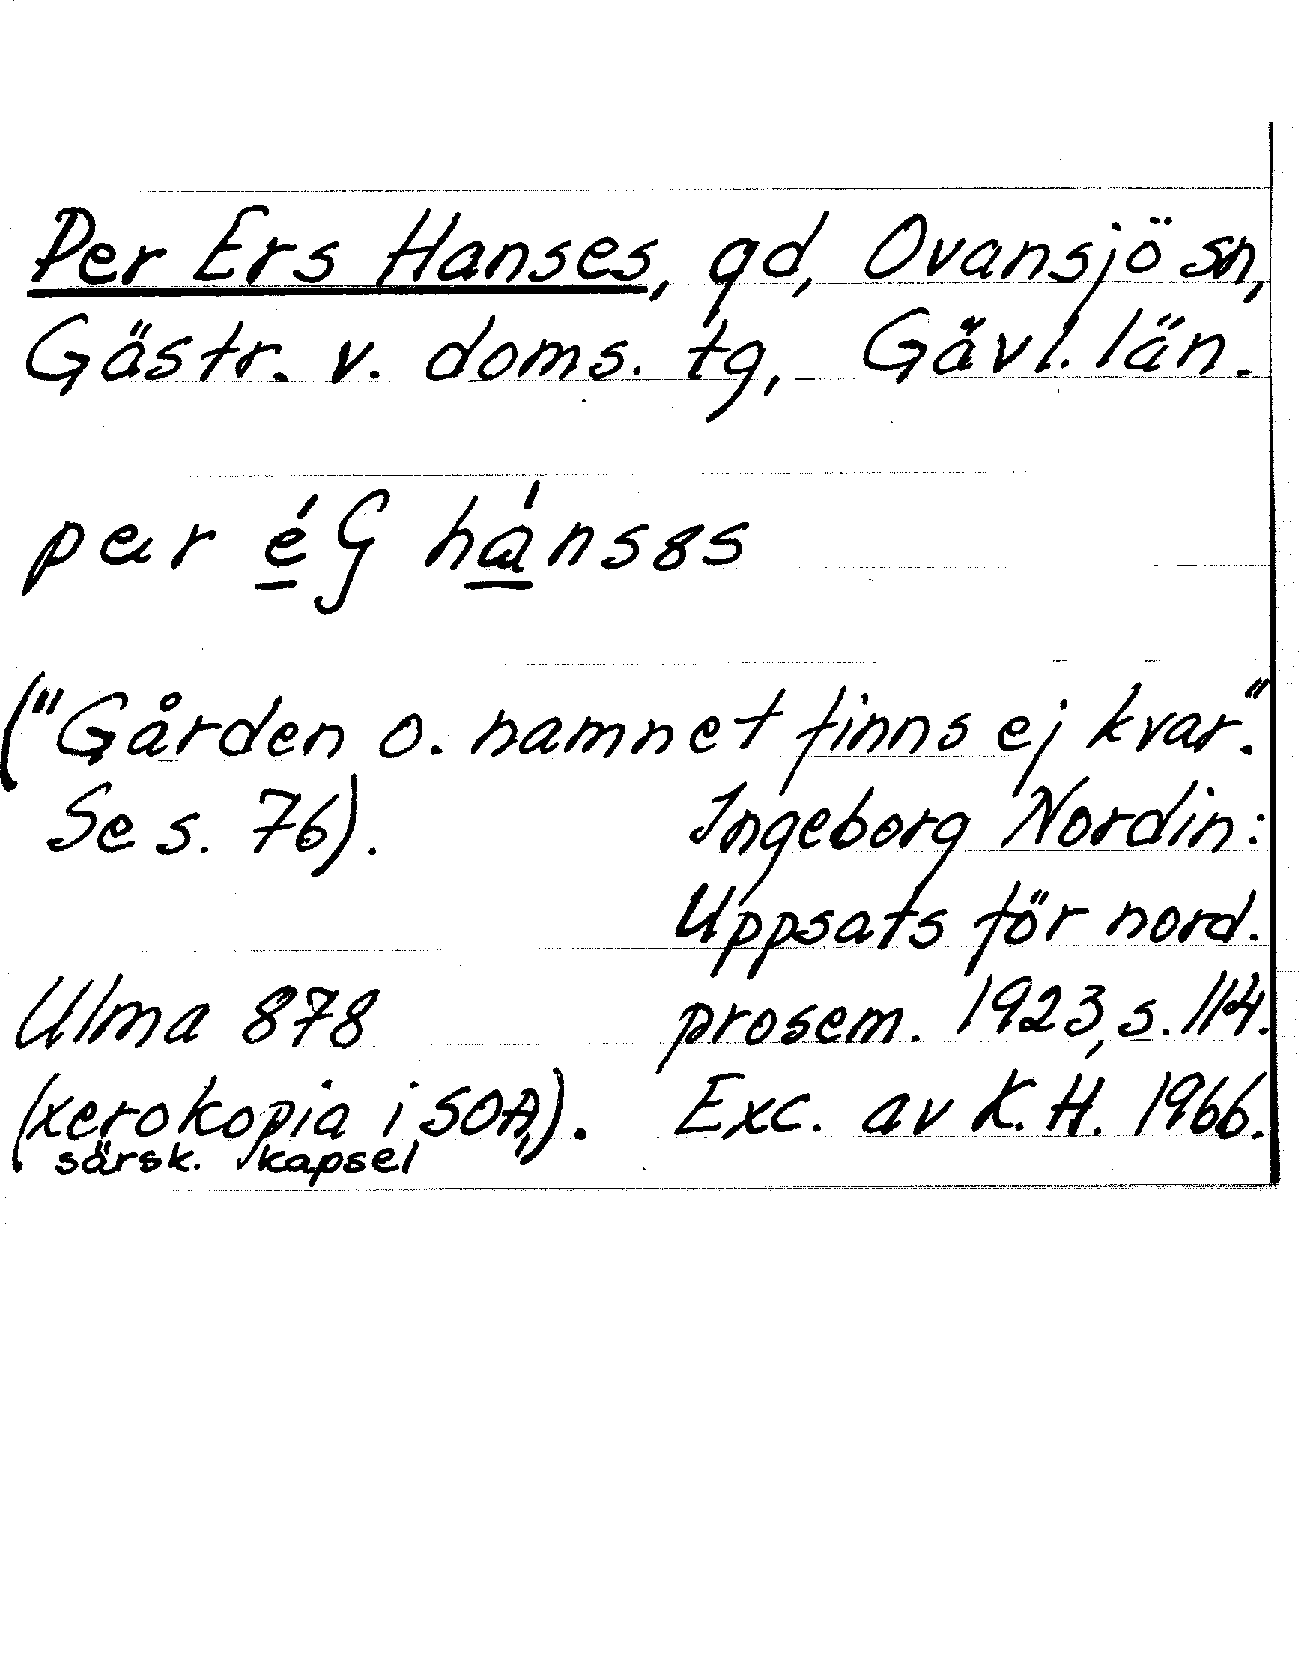 Per Ers Hanses, gd, Ovansjö sn,
Gästr. v. doms. tg, Gävl. län.
per éG hánsəs
("Gården o. namnet finns ej kvar."
Se s. 76).
Ingeborg Nordin:
Uppsats för nord.
prosem. 1923, s. 114.
Exc. av K. H. 1966.
Ulma 878
(xerokopia i SOA,).
särsk. kapsel